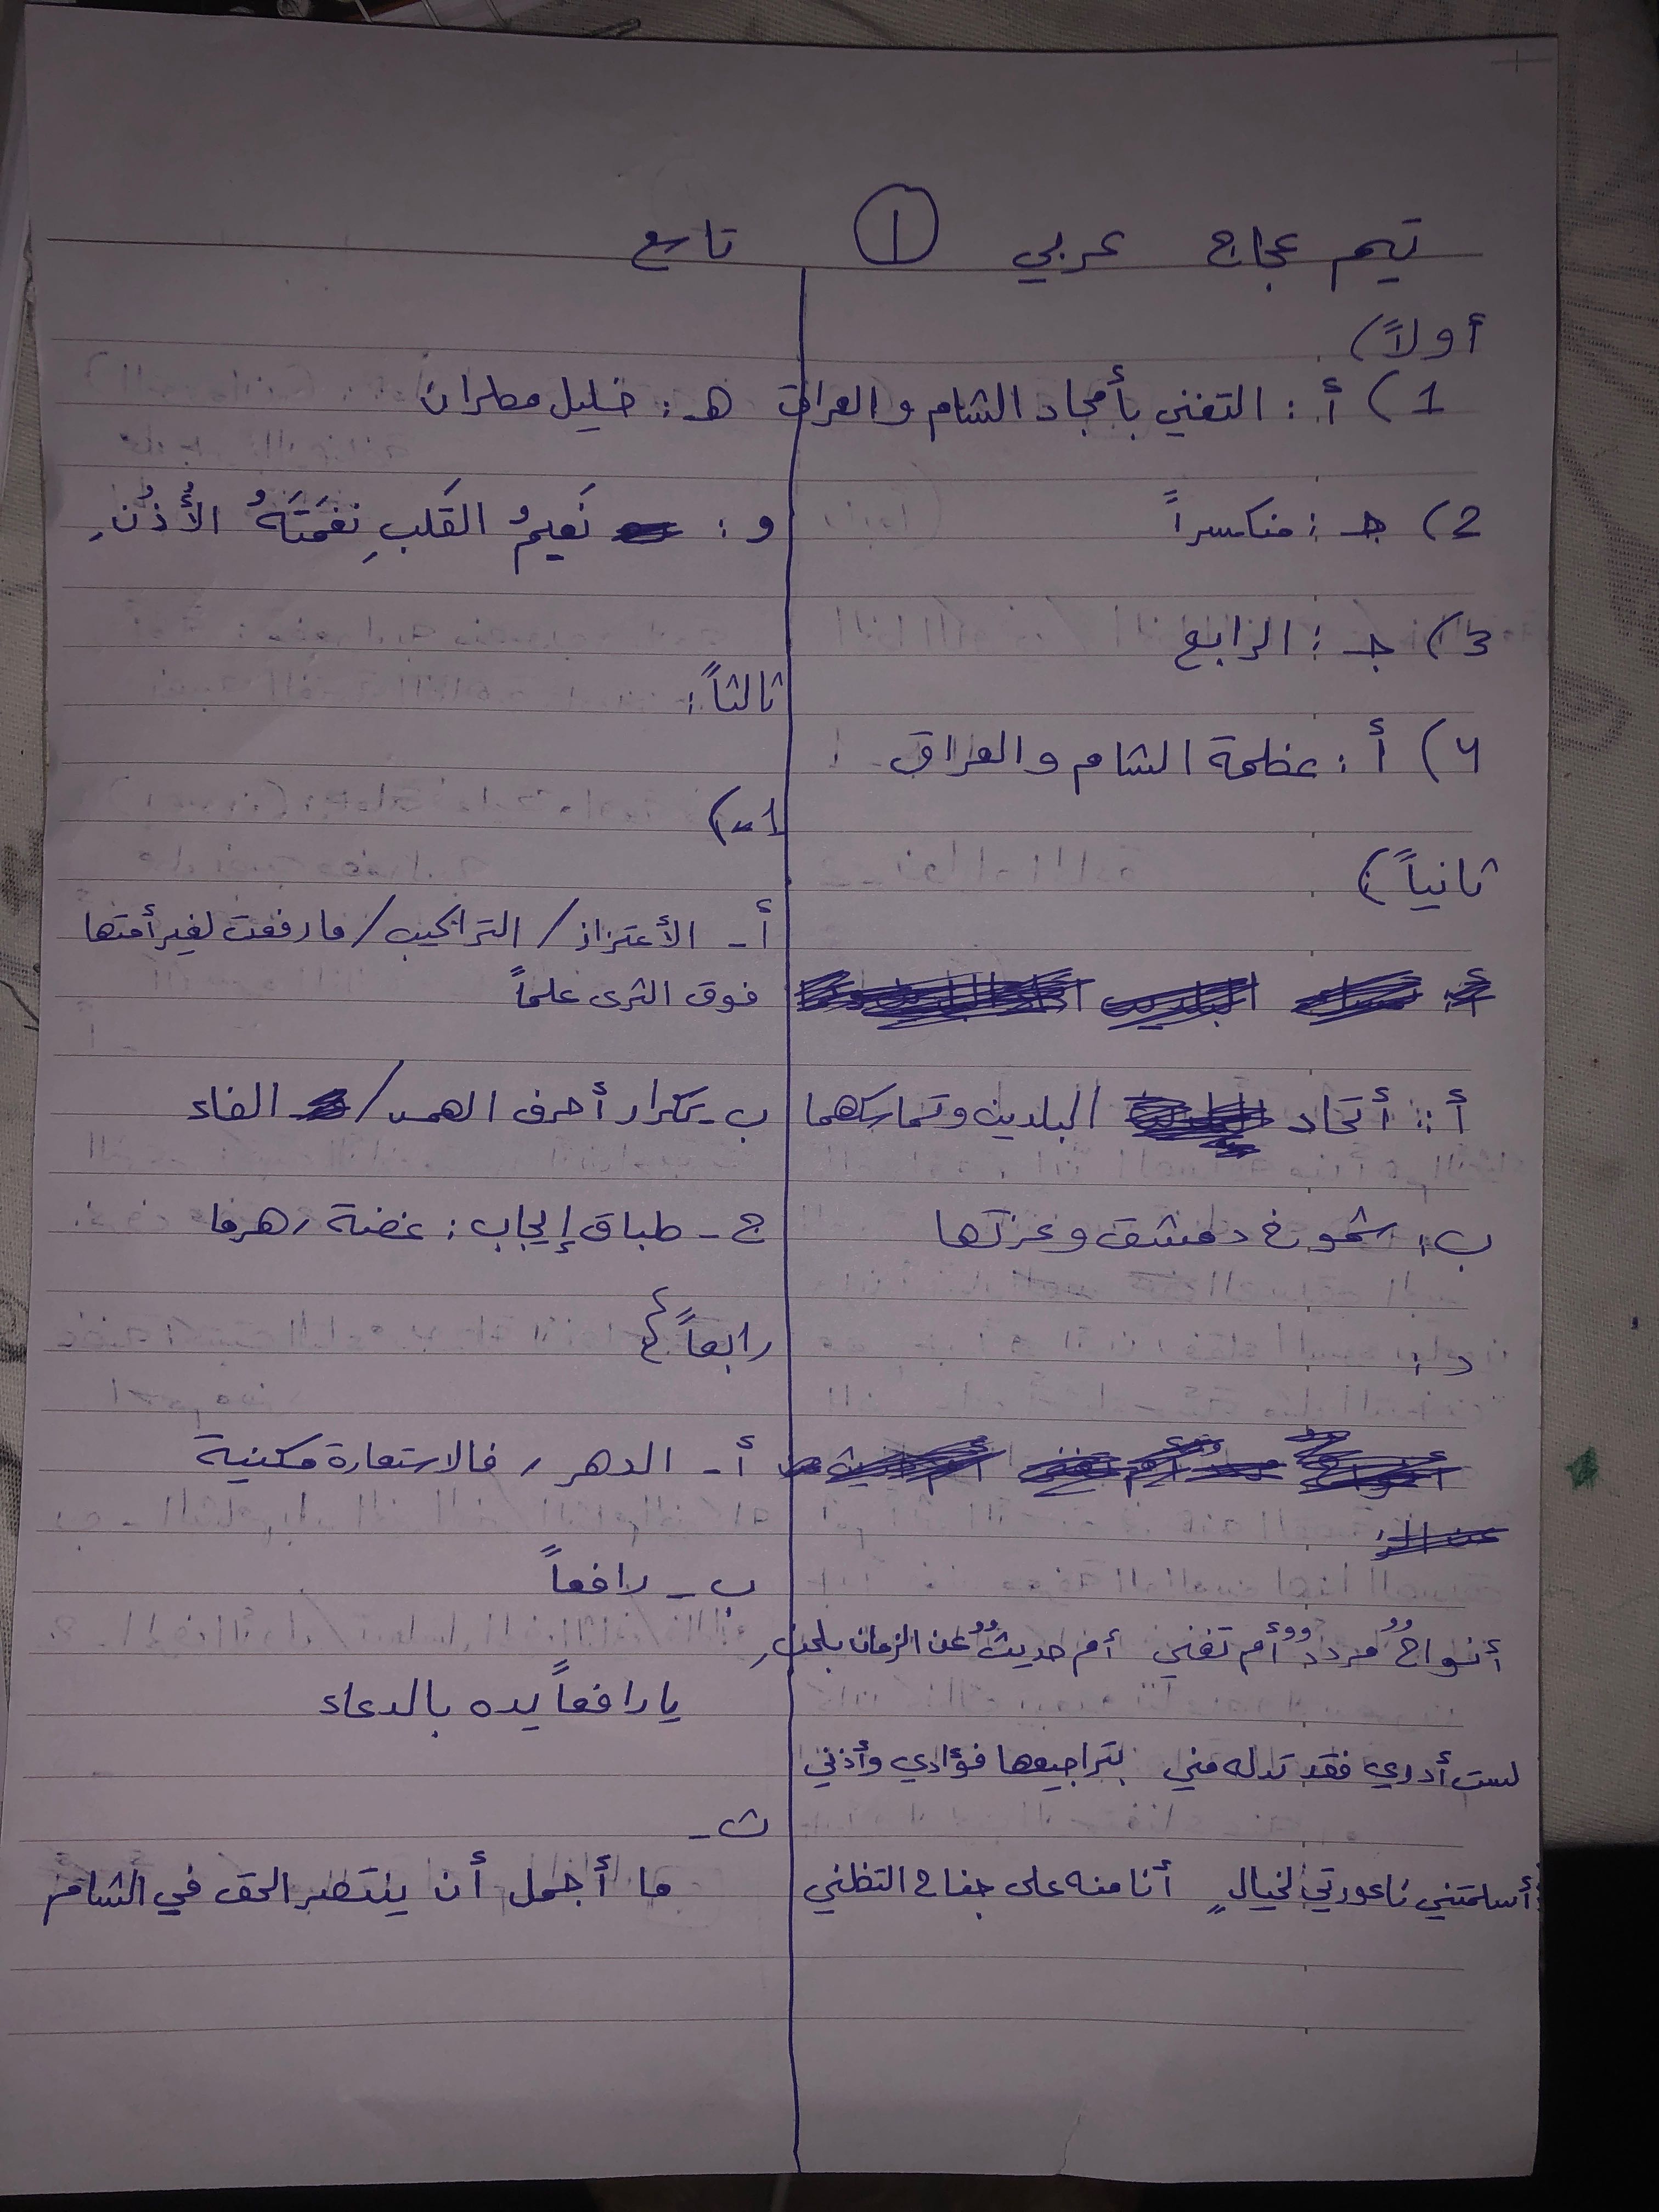 تيم عجاج عربي ١ تاسع
أولاً)
1) أ: التغني بأمجاد الشام والعراق
2) جـ: منكسراً
3) جـ: الرابع
4) أ: عظمة الشام والعراق
ثانياً)
أ: أتحاد البلدين وتماسكهما
ب: شموخ دمشق وعزتها
د:
أنواحٌ مرددٌ أم تغني أم حديثٌ عن الزمان بلحنِ
لست أدري فقد تدله مني بتراجيعها فؤادي وأذني
أسلمتني ناعورتي لخيالٍ أنا منه على جناح التظني
هـ: خليل مطران
و: نَعيمُ القَلبِ نغمَتَهُ الأُذُنِ
ثالثاً:
1-)
أ- الأعتزاز/ التراكيب/ ما رفعت لغير أمتها
فوق الثرى علماً
ب- تكرار أحرف الهمس/ الفاء
ج- طباق إيجاب: غضة, هرما
رابعاً}
أ- الدهر, فالاستعارة مكنية
ب- رافعاً
يا رافعاً يده بالدعاء
ت-
ما أجمل أن ينتصر الحق في الشام